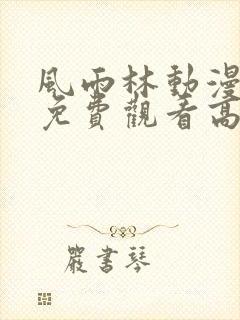 風雨林動漫
免費觀看高
嚴書琴